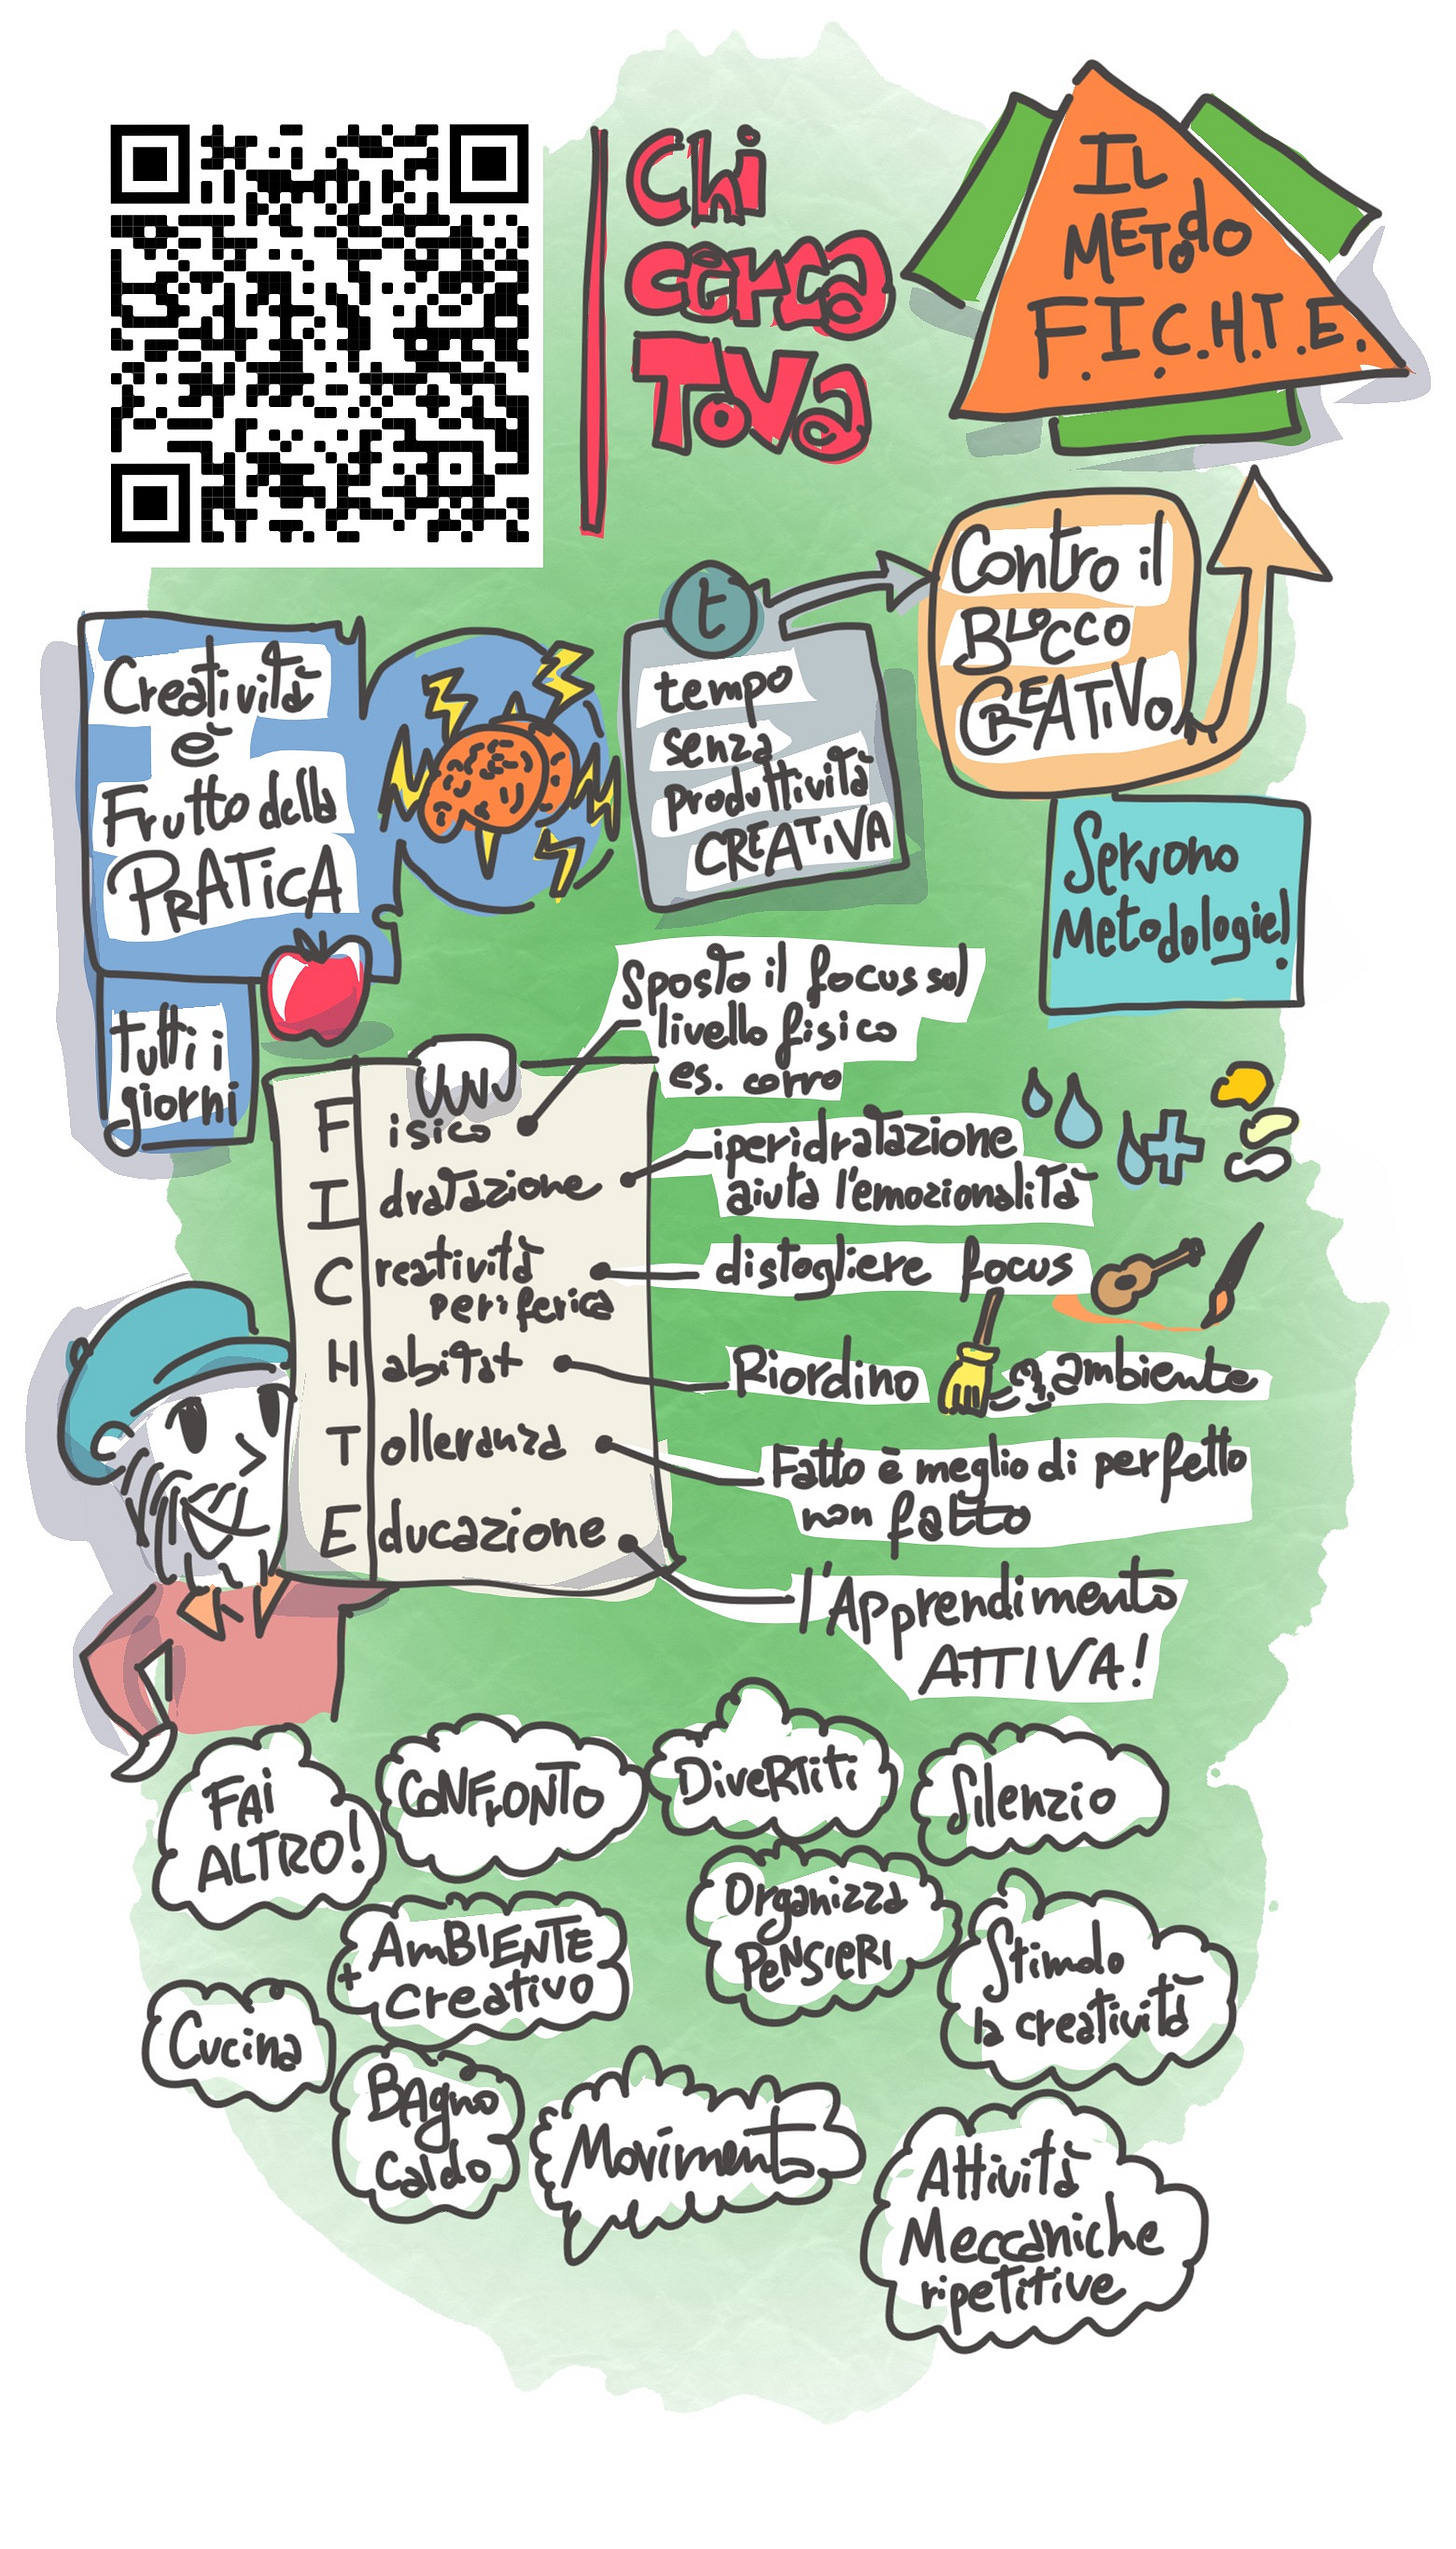 Chi
cerca
Tova
IL
METodo
F.I.C.H.T.E.
Creatività
è
Frutto della
PRATICA
tutti i
giorni
t
tempo
senza
produttività
CREATIVA
Contro il
BLOCCO
CREATIVO
Servono
Metodologie!
Sposto il focus sul
livello fisico
es. corro
F isico
I dratazione
iperidratazione
aiuta l'emozionalità
C reatività
periferica
distogliere focus
H abitat
Riordino ambiente
T olleranza
Fatto è meglio di perfetto
non fatto
E ducazione
l'Apprendimento
ATTIVA!
FAI
ALTRO!
CONFrONTO
DiveRTiti
Silenzio
AmBIENTE
+ creativo
Organizza
PeNSIERI
Stimolo
la creatività
Cucina
BAgno
Caldo
Movimento
Attività
Meccaniche
ripetitive